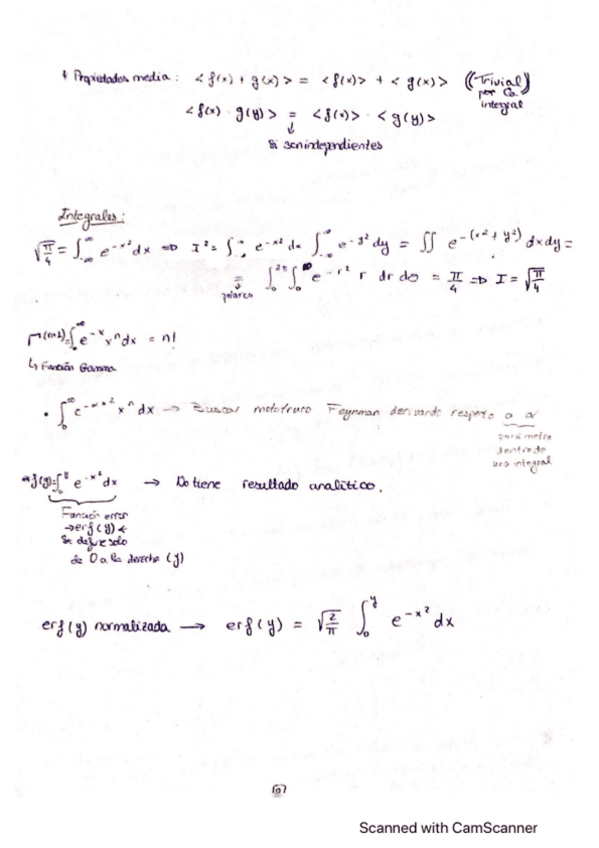 * Propiedades media: <f(x) + g(x)> = <f(x)> + <g(x)> ((Trivial) por la integral
<f(x) · g(y)> = <f(x)> · <g(y)>
↓
Si son independientes
Integrales:
√π/4 = ∫_{-∞}^{∞} e^{-x²} dx ⇒ I² = ∫_{-∞}^{∞} e^{-x²} dx ∫_{-∞}^{∞} e^{-y²} dy = ∬ e^{-(x²+y²)} dxdy =
= ∫_0^{2π} ∫_0^{∞} e^{-r²} r dr dθ = π/4 ⇒ I = √π/4
↓
polares
Γ(n+1) = ∫_0^∞ e^{-x} x^n dx = n!
↳ Función Gamma
• ∫_0^∞ e^{-αx²} x^n dx → Buscar Feynman derivando respecto a α
parámetro
dentro de
una integral
erf(y) = ∫_0^y e^{-x²} dx → No tiene resultado analítico.
Función error
→ erf(y) ←
Se define solo
de 0 a la derecha (y)
erf(y) normalizada → erf(y) = √2/π ∫_0^y e^{-x²} dx
Scanned with CamScanner